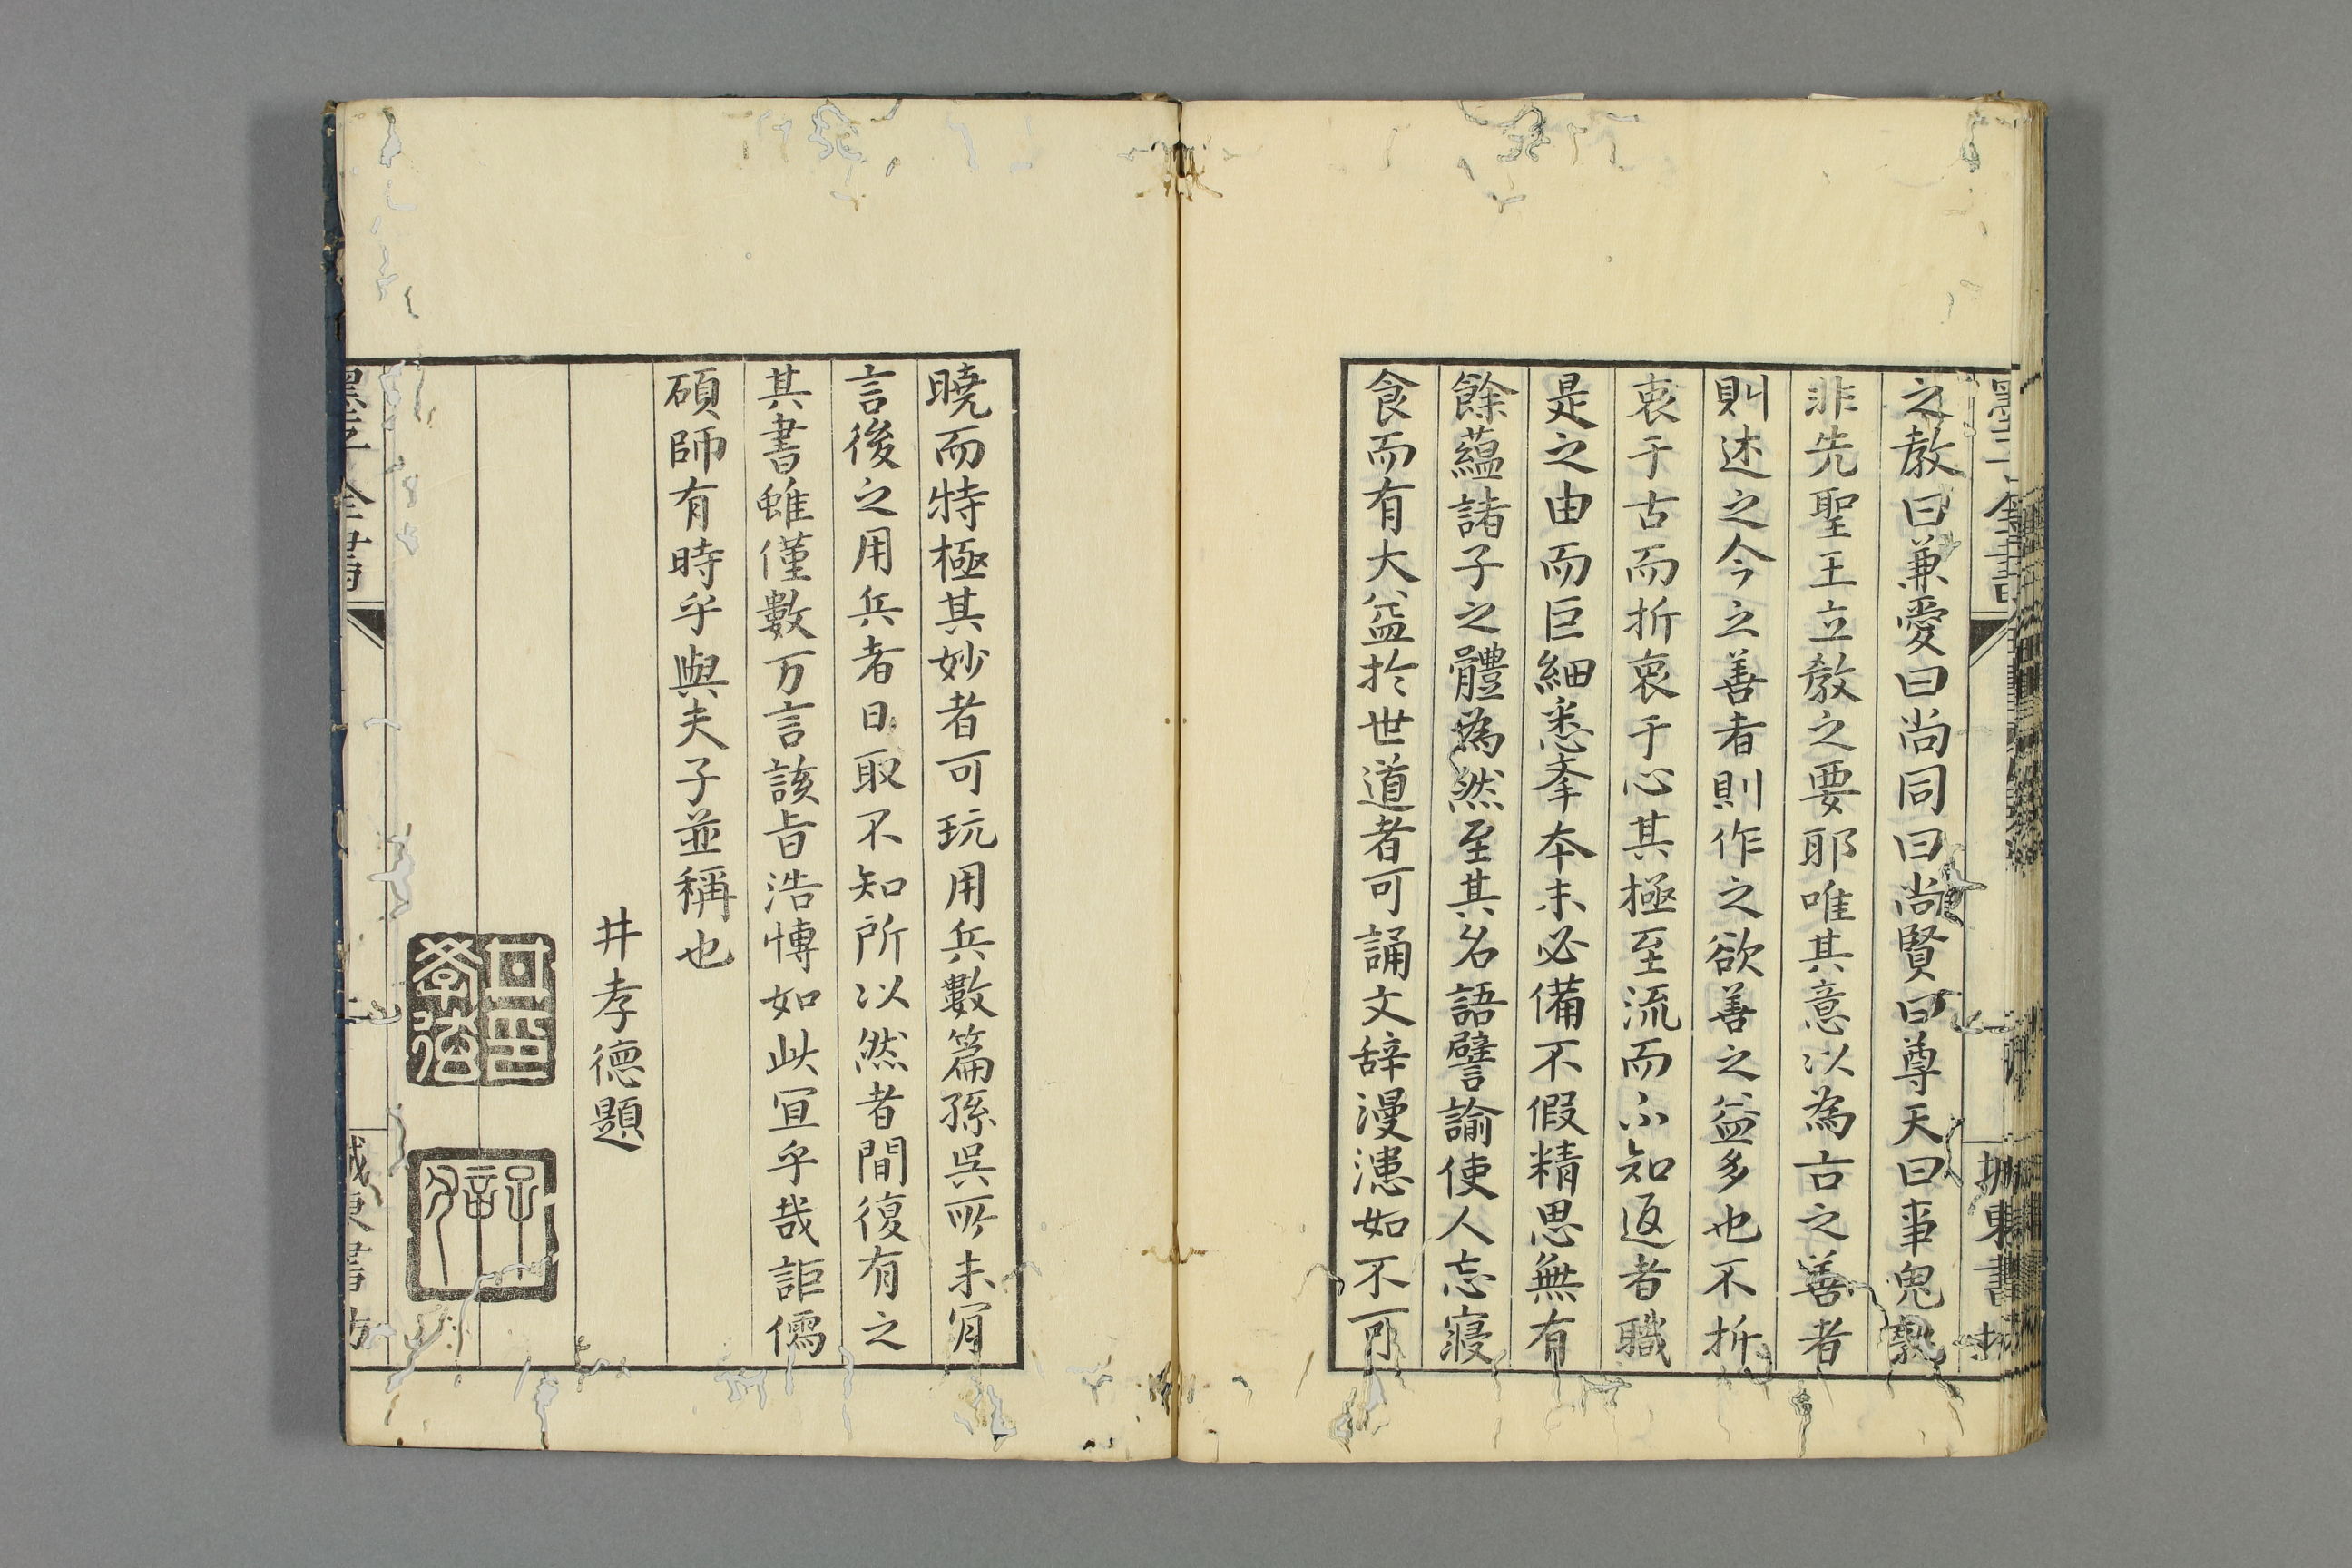 墨子全書
城東書坊
之教曰兼愛曰尚同曰尚賢曰尊天曰事鬼孰
非先聖王立教之要耶唯其意以為古之善者
則述之今之善者則作之欲善之益多也不折
衷于古而折衷于心其極至流而不知返者職
是之由而巨細悉挙本末必備不假精思無有
餘蘊諸子之體為然至其名語譬諭使人忘寢
食而有大益於世道者可誦文辞漫漶如不可
曉而特極其妙者可玩用兵數篇孫呉所未曾
言後之用兵者日取不知所以然者間復有之
其書雖僅數万言該旨浩博如此宜乎哉詎儒
碩師有時乎與夫子並稱也
井孝德題
墨子全書
城東書坊